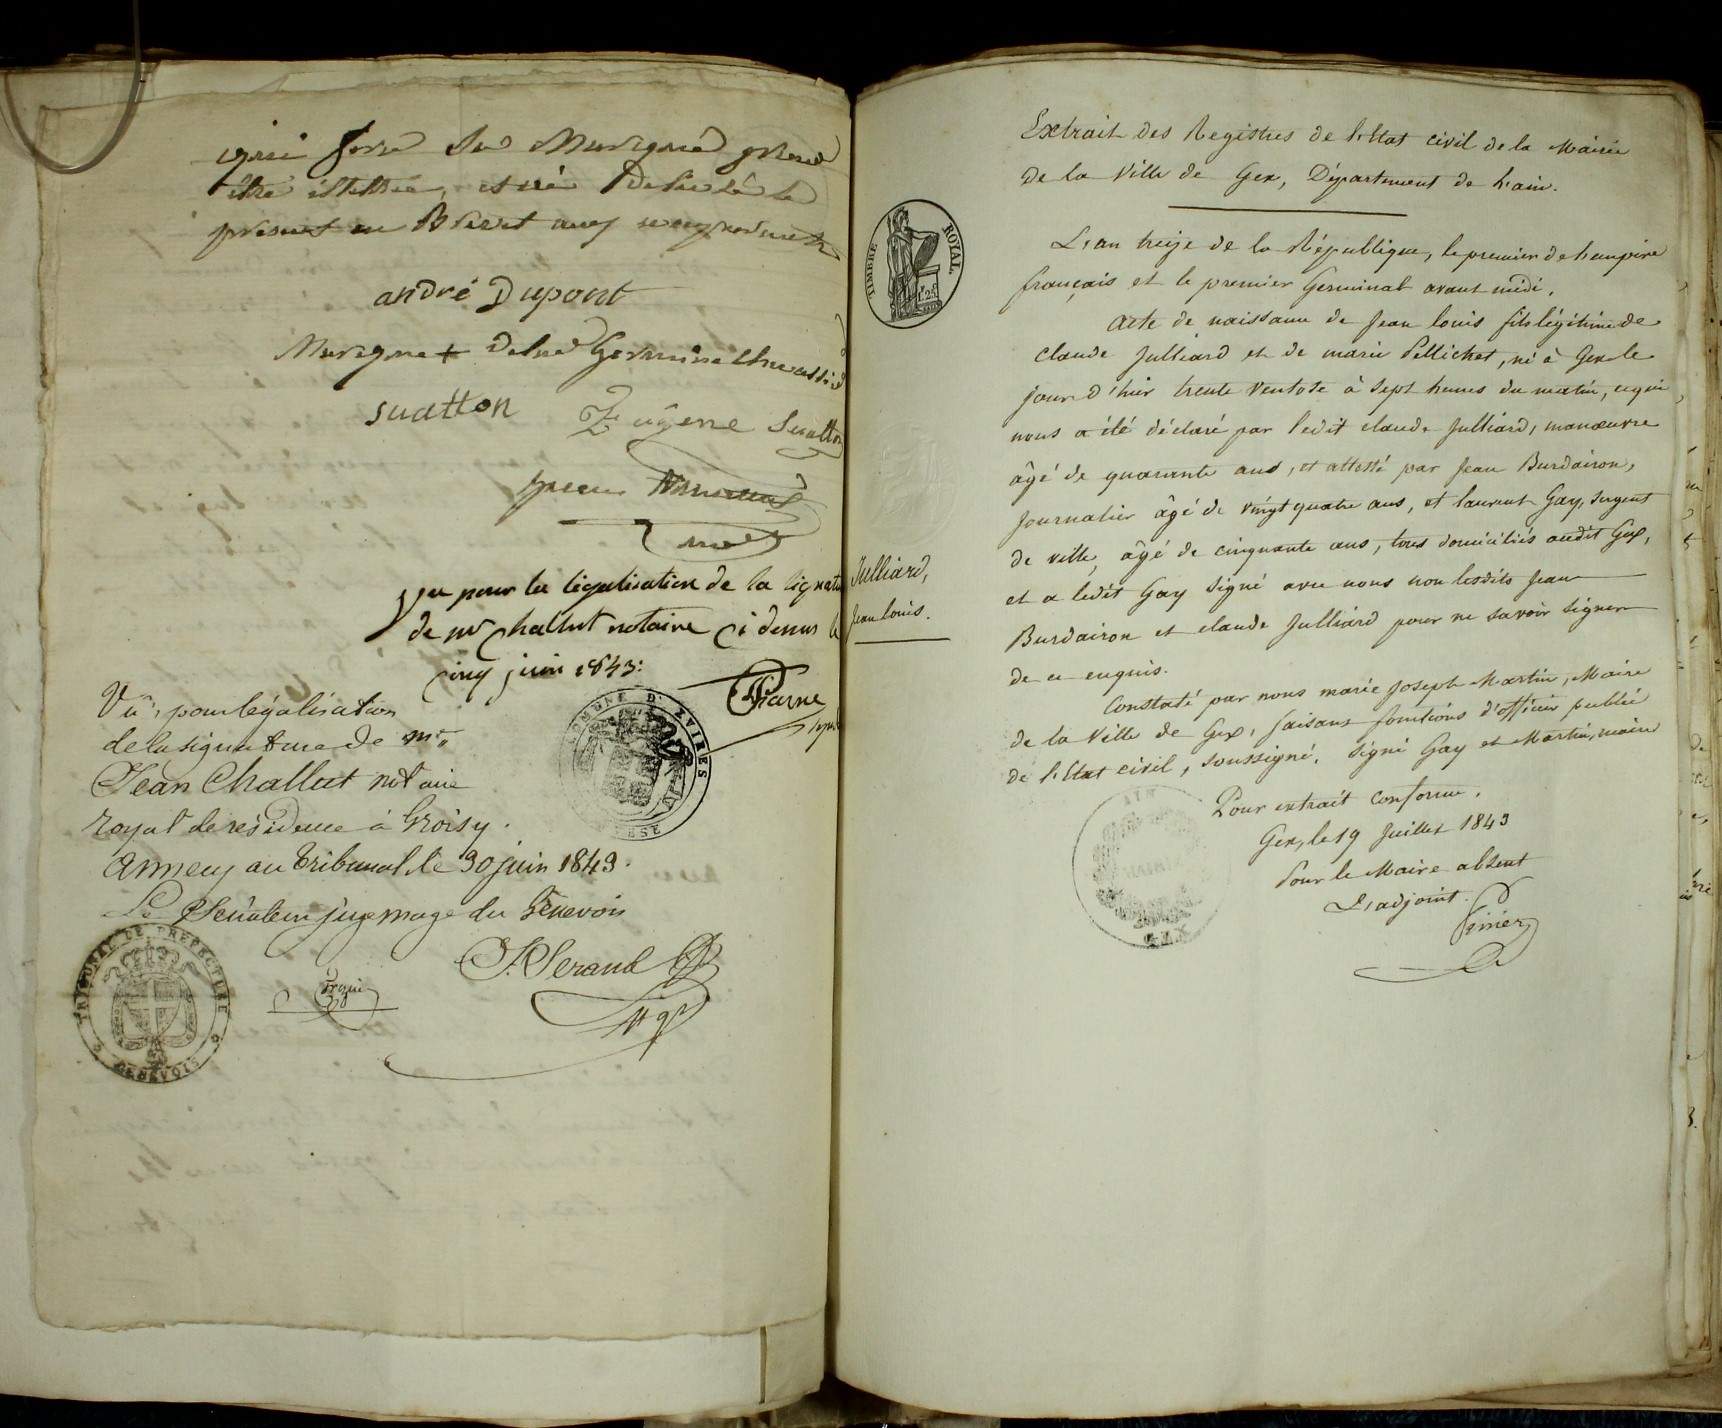 être illettrée,
présent en Brevet
andré Dupont
Marque + de
suatton Eugène Suatton
Vu pour la légalisation de la signatu
de mr challut notaire ci dessus le
cinq juin 1843:
COMMUNE D'EVIRES
Vu, pour légalisation
de la signature de Me
Jean Challut notaire
royal de résidence à Groisy.
Annecy au tribunal le 30 juin 1843.
Le Sénateur juge mage du Genevois
TRIBUNAL DE PREFECTURE
GENEVOIS
Extrait des Registres de l'Etat civil de la Mairie
de la Ville de Gex, Département de l'ain.
TIMBRE ROYAL
L'an treize de la République, le premier de l'empire
français et le premier Germinal avant midi,
Acte de naissance de Jean louis fils légitime de
claude Julliard et de marie Pellichet, né à Gex le
jour d'hier trente Ventose à sept heures du matin, ce qui
nous a été déclaré par ledit claude Julliard, manœuvre
âgé de quarante ans, et attesté par Jean Burdairon,
Journalier âgé de vingt quatre ans, et laurent Gay, sergent
de ville, âgé de cinquante ans, tous domiciliés audit Gex,
et a ledit Gay signé avec nous non lesdits Jean
Burdairon et claude Julliard pour ne savoir signer
de ce enquis.
Julliard,
Jean louis.
Constaté par nous marie Joseph Martin, Maire
de la Ville de Gex, faisant fonctions d'officier public
de l'Etat civil, soussigné, signé Gay et Martin, maire
Pour extrait conforme.
Gex, le 19 Juillet 1843
Pour le Maire absent
L'adjoint.
MAIRIE
GEX